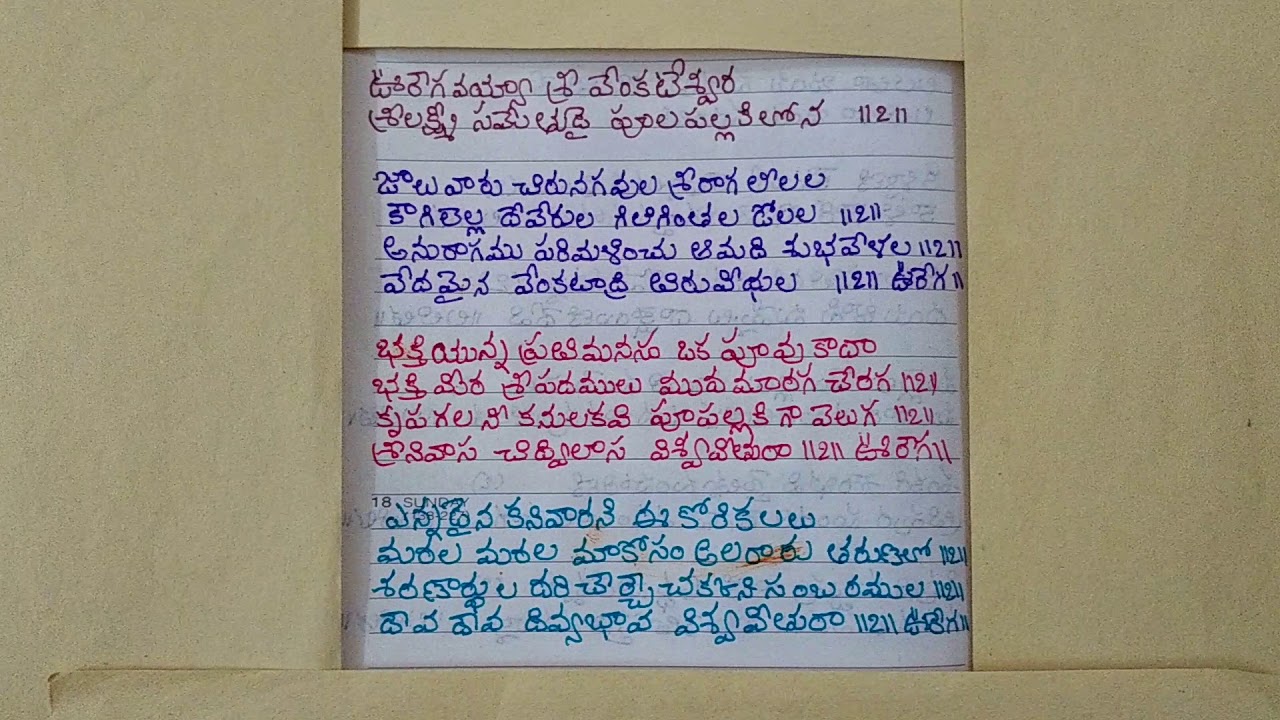 ఊరేగవయ్యా శ్రీ వేంకటేశ్వర
శ్రీలక్ష్మీ సమేతుడై పూలపల్లకిలోన ॥2॥
జాలువారు చిరునగవుల శ్రీరాగ లీలల
కౌగిలెల్ల దేవేరుల గిలిగింతల డోలల ॥2॥
అనురాగము పరిమళించు ఆమడి శుభవేళల ॥2॥
వేదమైన వేంకటాద్రి తిరువీధుల ॥2॥ ఊరేగ॥
భక్తియున్న ప్రతిమనసు ఒక పూవు కాదా
భక్తి మీర శ్రీపదములు ముదమారగ చేరగ ॥2॥
కృపగల నీ కనులకవి పూపల్లకి గా వెలుగ ॥2॥
శ్రీనివాస చిద్విలాస విశ్వవీతురా ॥2॥ ఊరేగ॥
18 SUNDAY
ఎన్నడైన కనివారని ఈ కోరికలలు
మరల మరల మాకోసం అలరారు తరుణలో ॥2॥
శరణార్థుల దరి చేర్చే చకని సంబరముల ॥2॥
దేవ దేవ దివ్యభావ విశ్వవీతురా ॥2॥ ఊరేగ॥